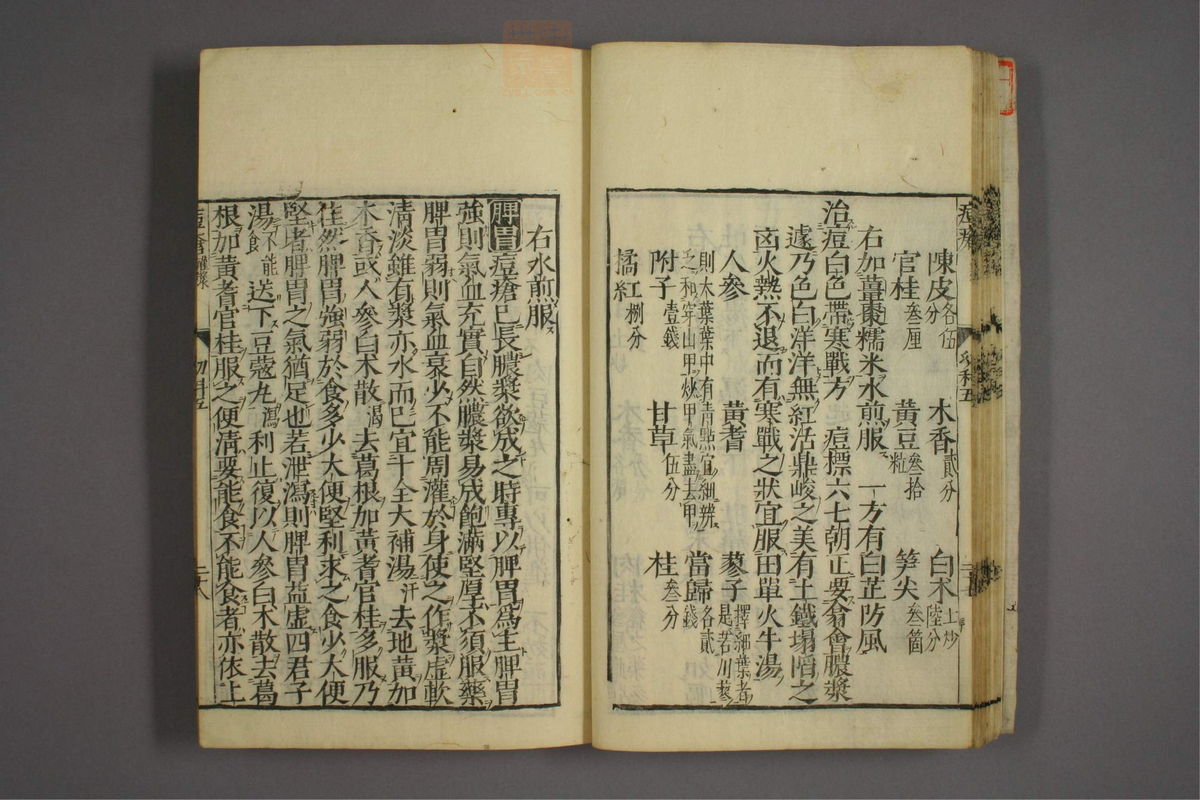 陳皮各伍分 木香貳分 白朮土炒陸分
官桂叁厘 黃豆叁拾粒 筍尖叁箇
右加薑棗糯米水煎服 一方有白芷防風
治痘白色帶寒戰方 痘標六七朝正要翕會膿漿
遽乃色白洋洋無紅活鼎峻之美有土鐵塌陷之
凶火熱不退而有寒戰之狀宜服田單火牛湯
人參 黃耆 蓼子擇細葉者是若川蓼
則大葉葉中有青點宜細辨之和穿山甲炒甲氣盡去甲 當歸各貳錢
附子壹錢 甘草伍分 桂叁分
橘紅捌分
右水煎服
脾胃痘瘡已長膿漿欲成之時專以脾胃爲主脾胃
強則氣血充實自然膿漿易成飽滿堅厚不須服藥
脾胃弱則氣血衰少不能周灌於身使之作漿虛軟
清淡雖有漿亦水而已宜十全大補湯汗去地黃加
木香或人參白朮散渴去葛根加黃耆官桂多服乃
佳然脾胃強弱於食多少大便堅利求之食少大便
堅者脾胃之氣猶足也若泄瀉則脾胃益虛四君子
湯食不能送下豆蔻丸瀉利止復以人參白朮散去葛
根加黃耆官桂服之便清要能食不能食者亦依上
痘瘡
幼科五
二十八